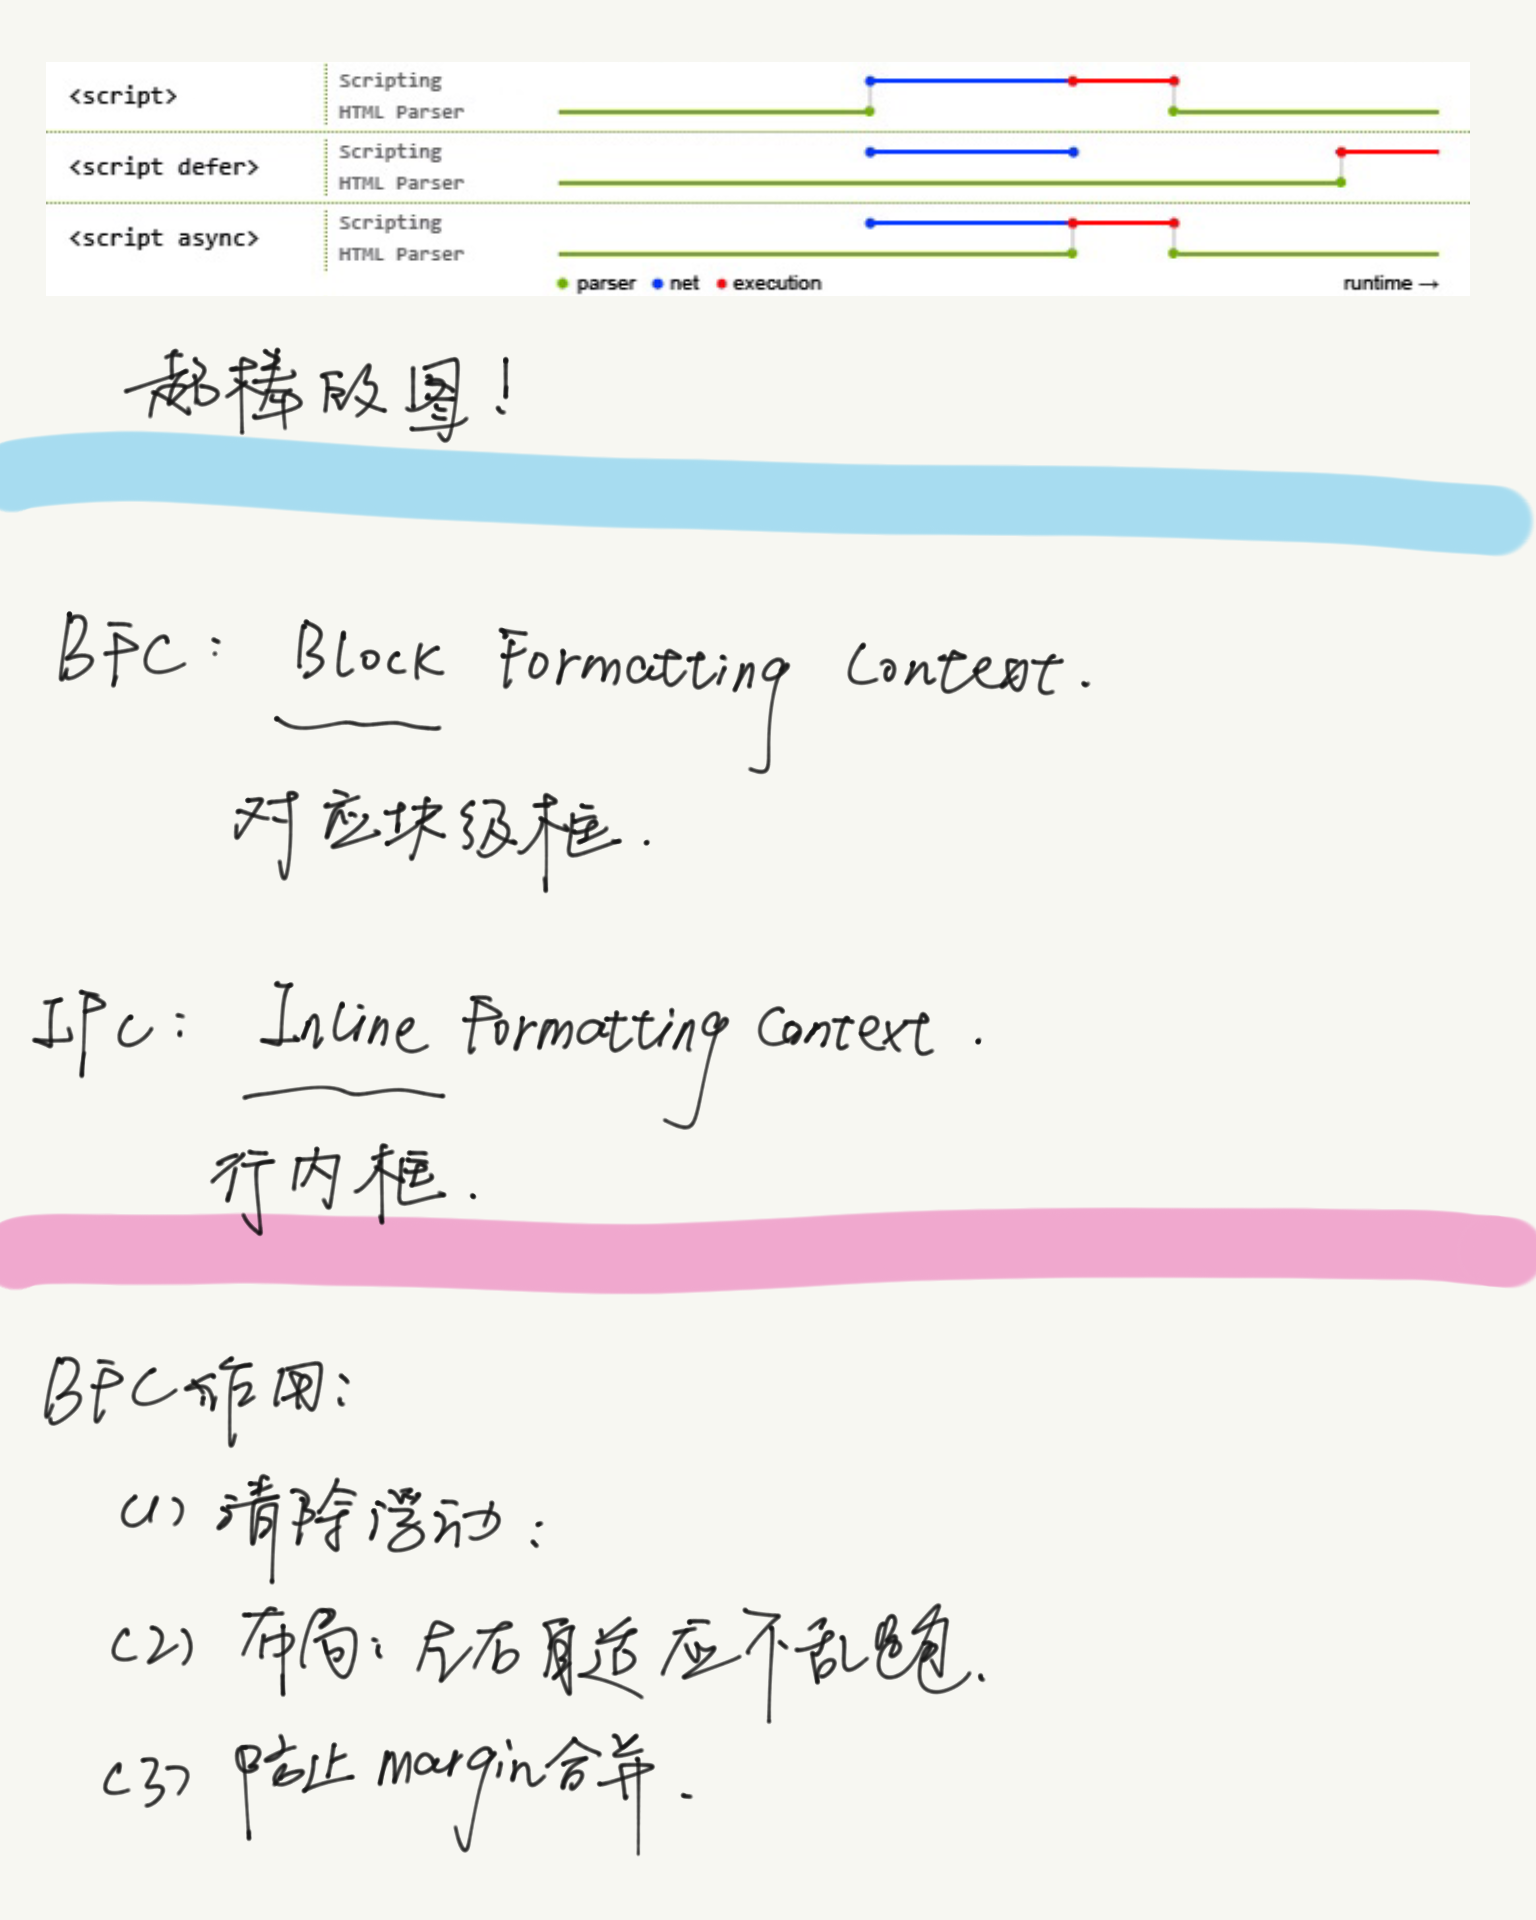 <script>
Scripting
HTML Parser
<script defer>
Scripting
HTML Parser
<script async>
Scripting
HTML Parser
parser net execution runtime →
超棒的图!
BFC: Block Formatting Context.
对应块级框.
IFC: Inline Formatting Context.
行内框.
BFC作用:
(1) 清除浮动:
(2) 布局: 左右自适应不乱跑.
(3) 防止margin合并.